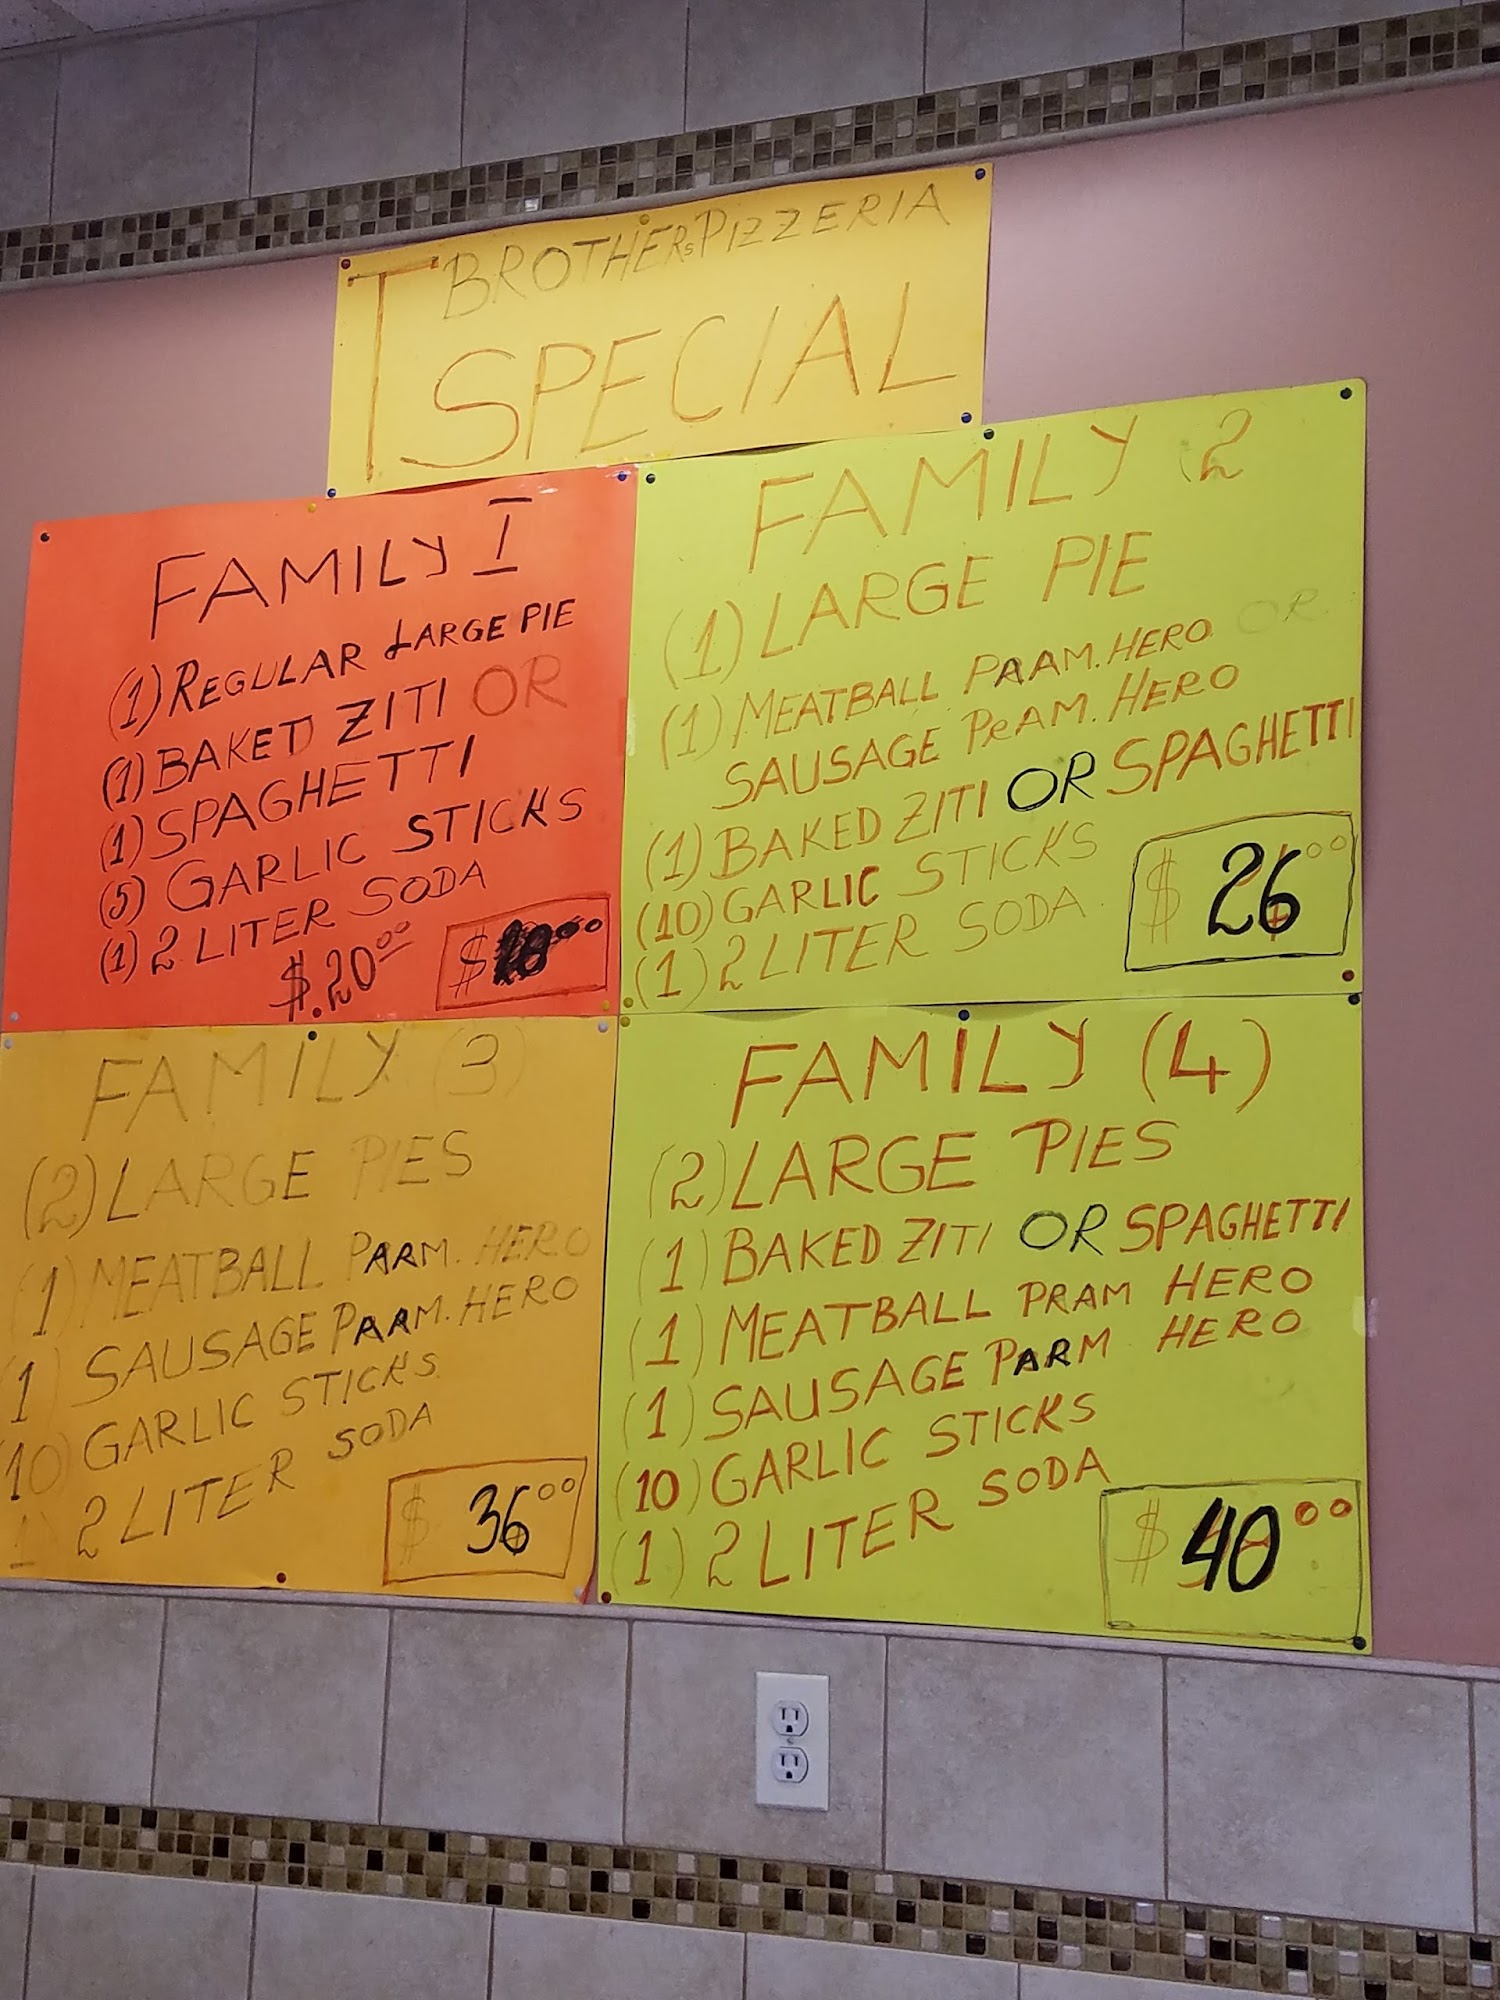 T BROTHERS PIZZERIA
SPECIAL
FAMILY I
(1) REGULAR LARGE PIE
(1) BAKED ZITI OR
(1) SPAGHETTI
(5) GARLIC STICKS
(1) 2 LITER SODA
$.20.00
$ .00
FAMILY 2
(1) LARGE PIE
(1) MEATBALL PAAM. HERO OR
SAUSAGE PRAM. HERO
(1) BAKED ZITI OR SPAGHETTI
(10) GARLIC STICKS
(1) 2 LITER SODA
$ 26.00
FAMILY (3)
(2) LARGE PIES
(1) MEATBALL PARM. HERO
(1) SAUSAGE PAAM. HERO
(10) GARLIC STICKS
(1) 2 LITER SODA
$ 36.00
FAMILY (4)
(2) LARGE PIES
(1) BAKED ZITI OR SPAGHETTI
(1) MEATBALL PRAM HERO
(1) SAUSAGE PARM HERO
(10) GARLIC STICKS
(1) 2 LITER SODA
$ 40.00